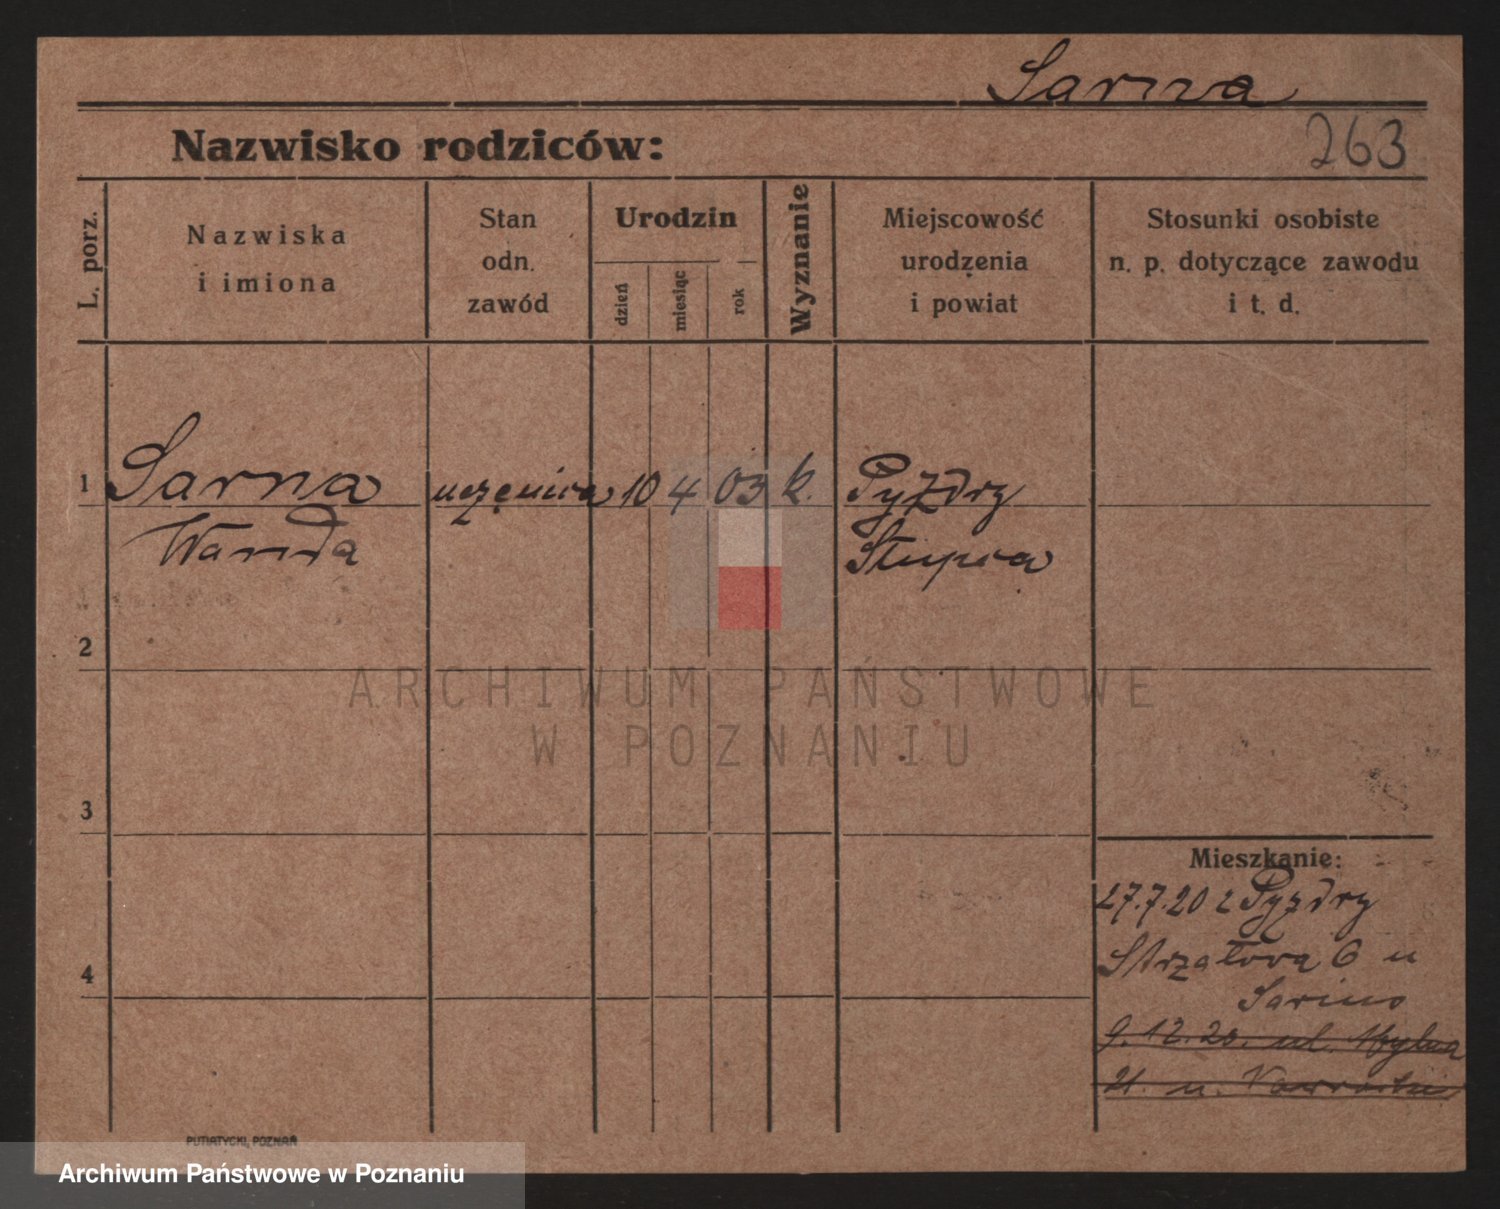 Sarna
Nazwisko rodziców:
263
L. porz.
Nazwiska
i imiona
Stan
odn.
zawód
Urodzin
dzień
miesiąc
rok
Wyznanie
Miejscowość
urodzenia
i powiat
Stosunki osobiste
n. p. dotyczące zawodu
i t. d.
1 Sarna uczenica 10 4 03 k. Pyzdry
Wanda Słupca
2
ARCHIWUM PAŃSTWOWE
W POZNANIU
3
Mieszkanie:
27.7.20 z Pyzdry
4
Strzałowa 6 u
9.12.20. ul.
21. u.
PUTIATYCKI, POZNAŃ
Archiwum Państwowe w Poznaniu